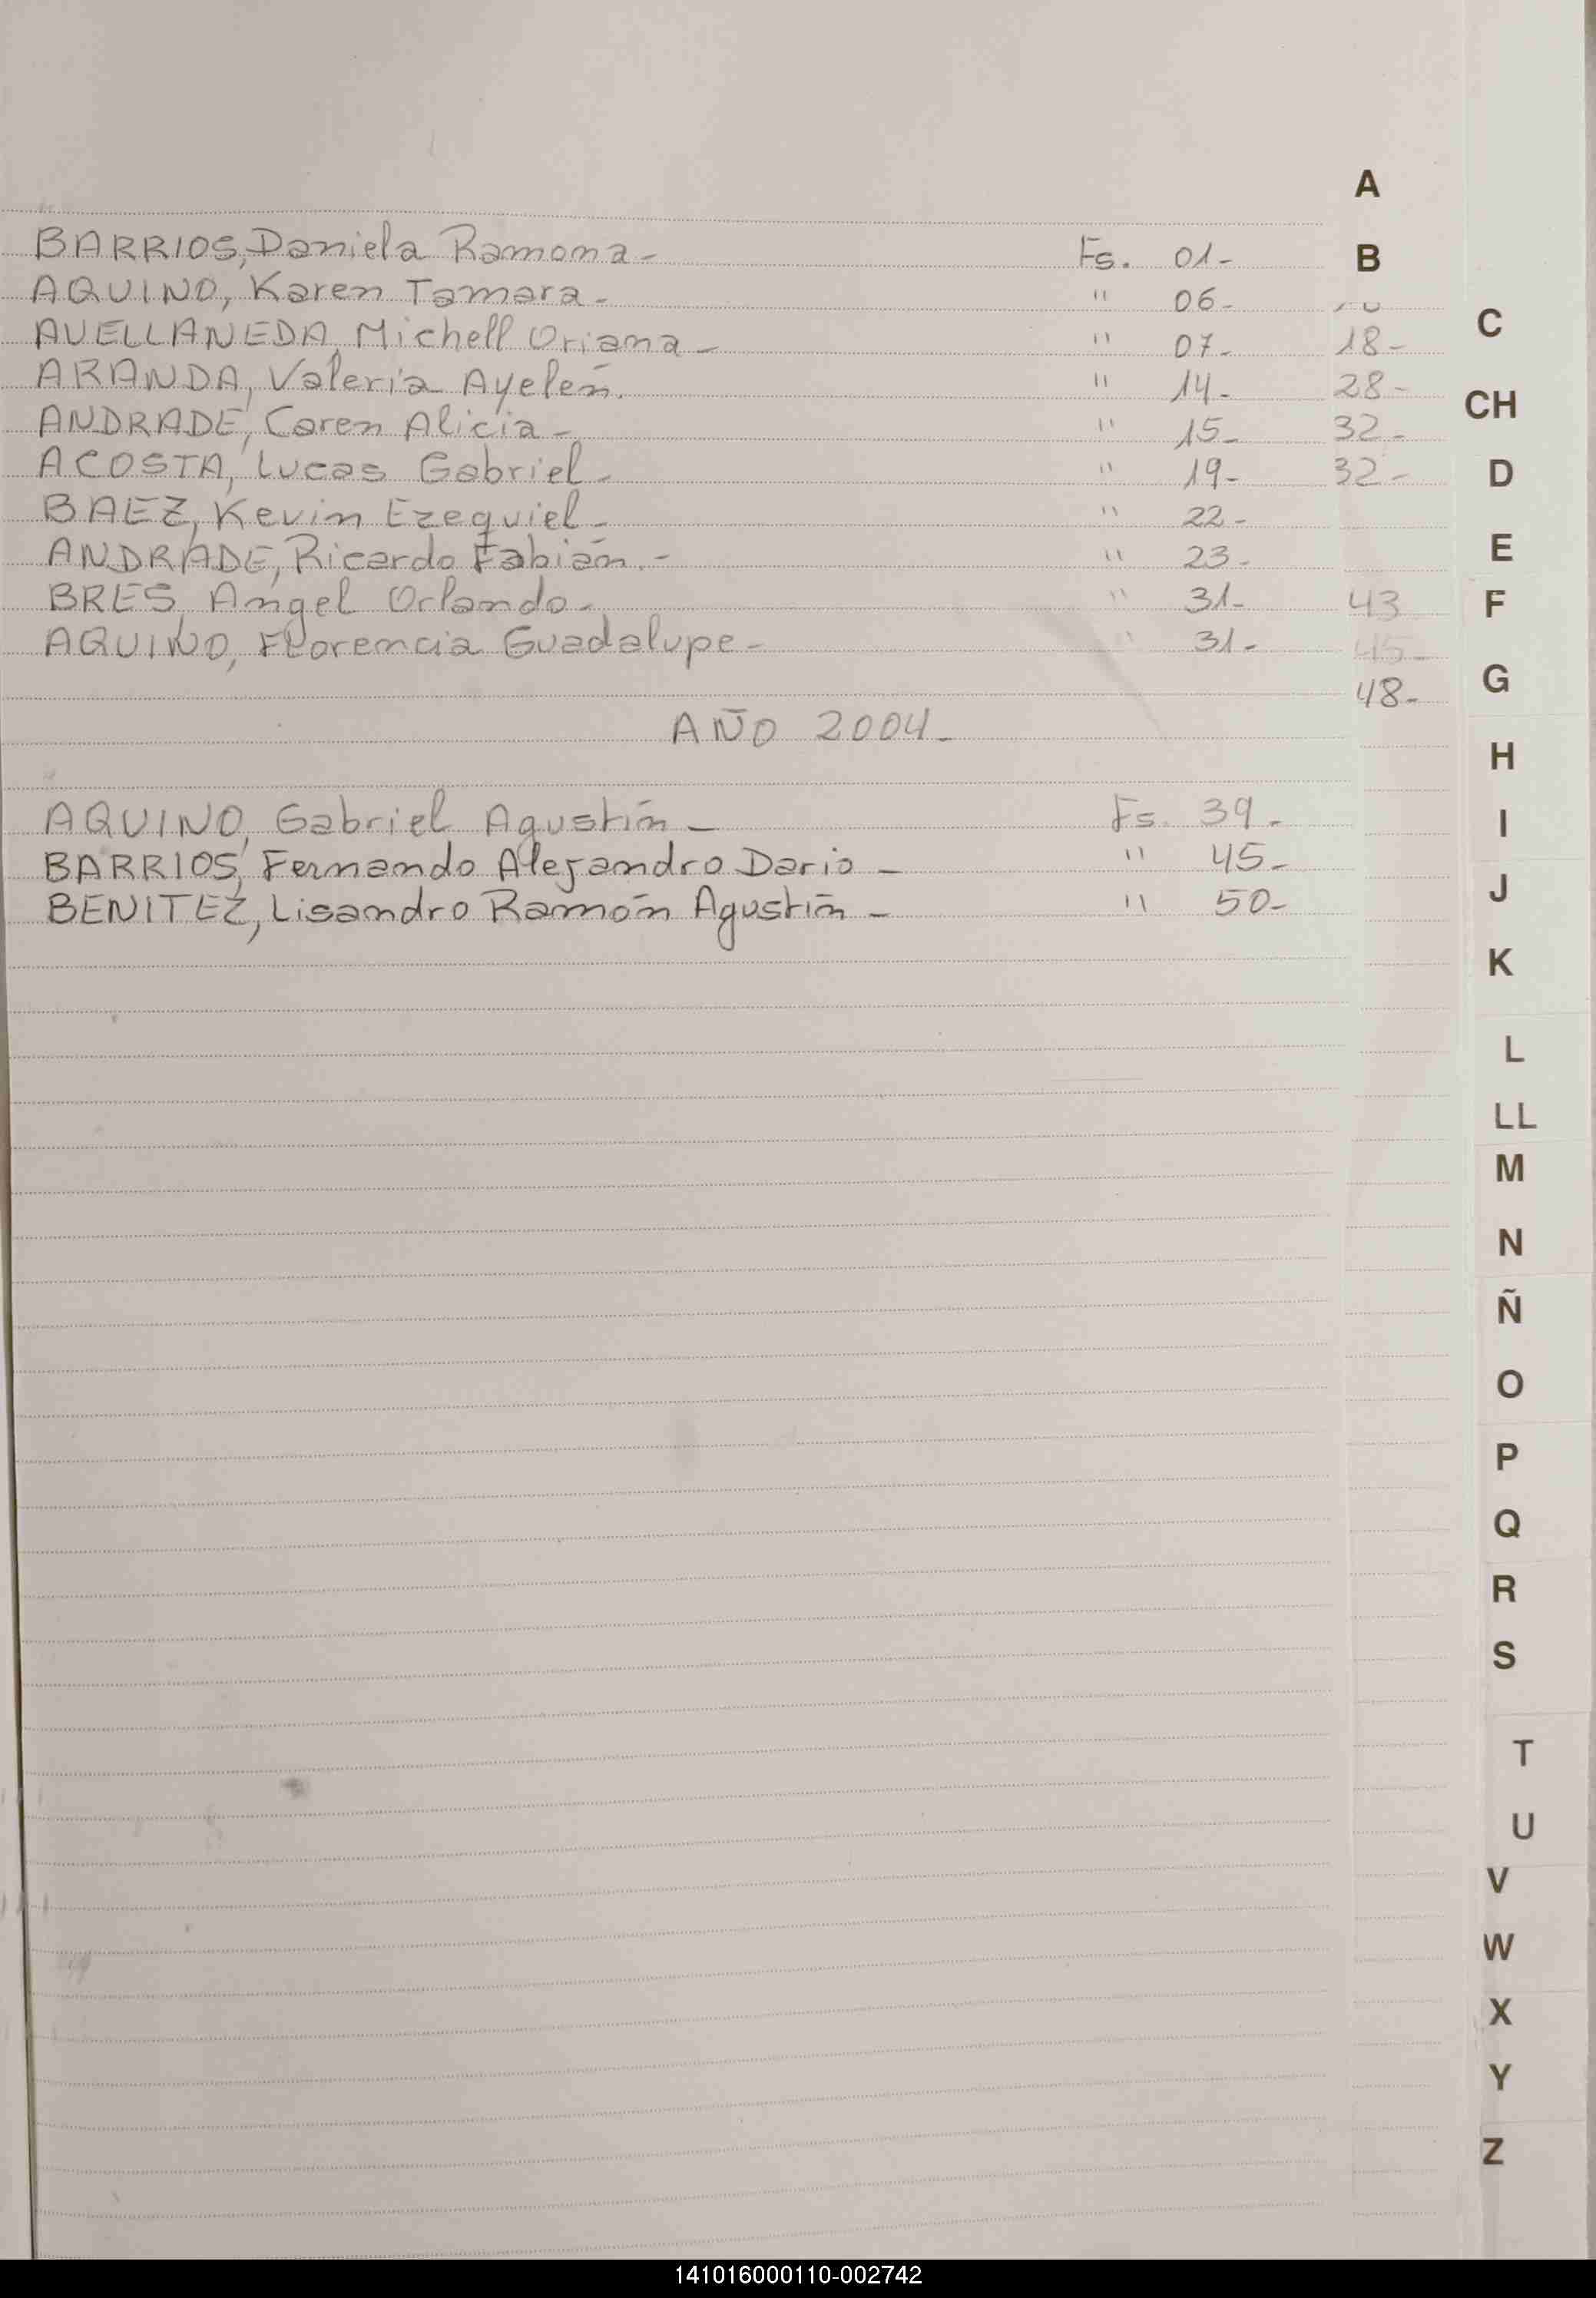 A
BARRIOS, Daniela Ramona - Fs. 01 -
B
AQUINO, Karen Tamara - " 06 -
C
AVELLANEDA, Michell Oriana - " 07 - 18 -
ARANDA, Valeria Ayelén. " 14 - 28 -
CH
ANDRADE, Caren Alicia - " 15 - 32 -
ACOSTA, Lucas Gabriel - " 19 - 32 -
D
BAEZ, Kevin Ezequiel - " 22 -
ANDRADE, Ricardo Fabián. - " 23 -
E
BRES, Angel Orlando - " 31 - 43
F
AQUINO, Florencia Guadalupe - " 31 - 45 -
G
48 -
AÑO 2004 -
H
AQUINO, Gabriel Agustín - Fs. 39 -
I
BARRIOS, Fernando Alejandro Dario - " 45 -
J
BENITEZ, Lisandro Ramón Agustín - " 50 -
K
L
LL
M
N
Ñ
O
P
Q
R
S
T
U
V
W
X
Y
Z
141016000110-002742